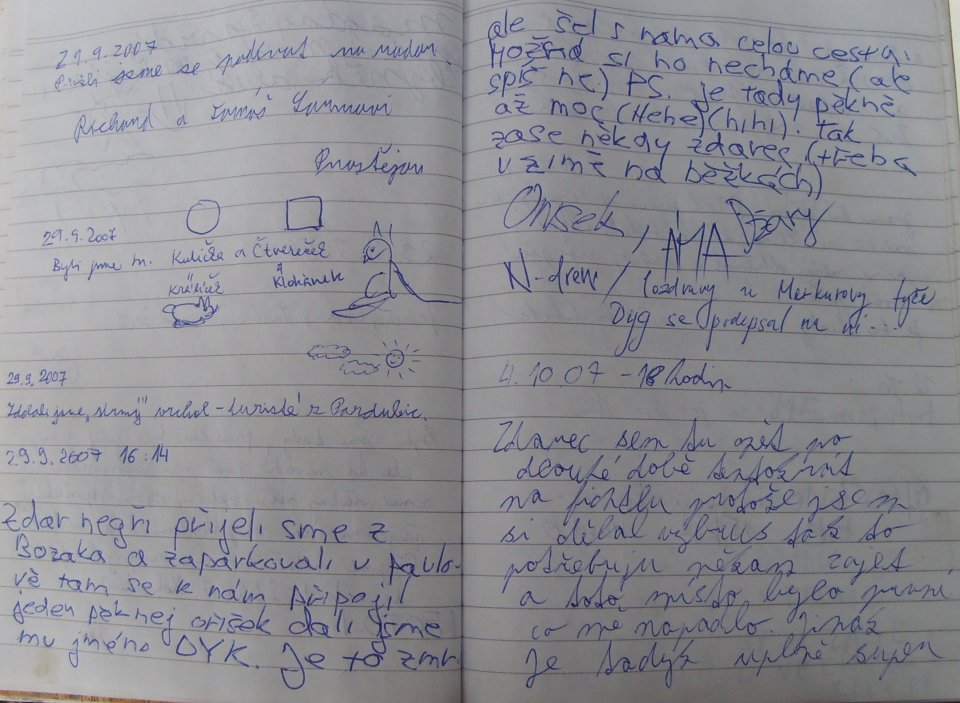 29.9.2007
Přišli jsme se podívat na
Richard a Tomáš
Prostějov
29.9.2007
Byli jsme tu. Kulička a Čtvereček
a
Králíček Klokánek
29.9.2007
vrchol - turisté z Pardubic.
29.9.2007 16:14
Zdar negři přijeli sme z
Bozaka a zaparkovali v pavlo-
vě tam se k nám připojil
jeden pěknej oříšek dali jsme
mu jméno DYK. Je to zmr
ale šel s nama celou cestu.
Možná si ho necháme (ale
spíš ne) PS. je tady pěkně
až moc (Hehe) (hihi). Tak
zase někdy zdarec (třeba
v zimě na běžkách)
Oříšek, AMA Džory
N-drew / Pozdravy z Merkurovy tyče
Dyg se podepsal na ní...
4.10 07 - 18 hodin
Zdarec sem tu opět po
dlouhé době tentokrát
na protože jsem
si dělal výbrus tak to
potřebuju někam zajet
a toto místo bylo první
co mě napadlo. jináč
je tadyk úplně super